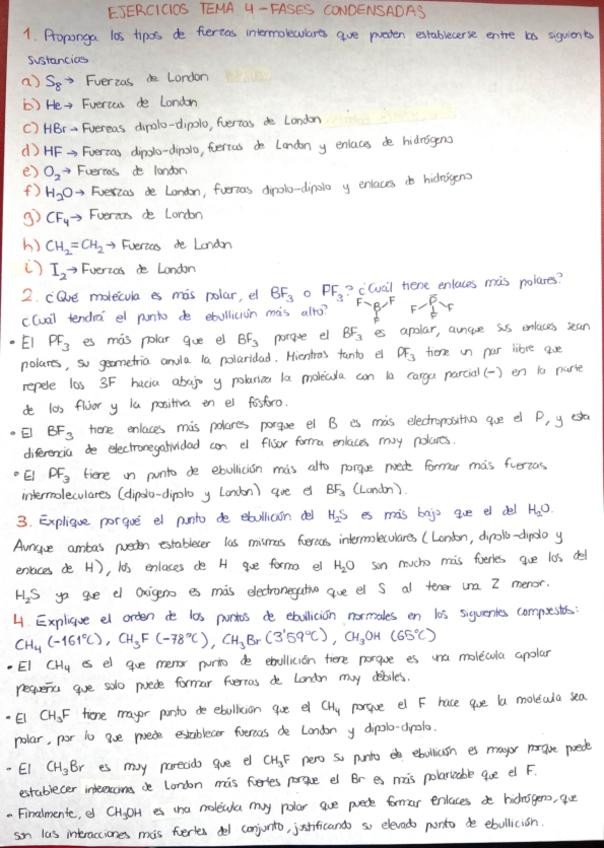 EJERCICIOS TEMA 4 - FASES CONDENSADAS
1. Proponga los tipos de fuerzas intermoleculares que pueden establecerse entre las siguientes
sustancias
a) S₈ → Fuerzas de London
b) He → Fuerzas de London
c) HBr → Fuerzas dipolo-dipolo, fuerzas de London
d) HF → Fuerzas dipolo-dipolo, fuerzas de London y enlaces de hidrógeno
e) O₂ → Fuerzas de london
f) H₂O → Fuerzas de London, fuerzas dipolo-dipolo y enlaces de hidrógeno
g) CF₄ → Fuerzas de London
h) CH₂=CH₂ → Fuerzas de London
i) I₂ → Fuerzas de London
2. ¿Qué molécula es más polar, el BF₃ o PF₃? ¿Cuál tiene enlaces más polares?
¿Cuál tendrá el punto de ebullición más alto? F B F F F P F F
• El PF₃ es más polar que el BF₃ porque el BF₃ es apolar, aunque sus enlaces sean
polares, su geometría anula la polaridad. Mientras tanto el PF₃ tiene un par libre que
repele los 3F hacia abajo y polariza la molécula con la carga parcial (-) en la parte
de los flúor y la positiva en el fósforo.
• El BF₃ tiene enlaces más polares porque el B es más electropositivo que el P, y esta
diferencia de electronegatividad con el flúor forma enlaces muy polares.
• El PF₃ tiene un punto de ebullición más alto porque puede formar más fuerzas
intermoleculares (dipolo-dipolo y London) que el BF₃ (London).
3. Explique por qué el punto de ebullición del H₂S es más bajo que el del H₂O.
Aunque ambas pueden establecer las mismas fuerzas intermoleculares (London, dipolo-dipolo y
enlaces de H), los enlaces de H que forma el H₂O son mucho más fuertes que los del
H₂S ya que el Oxígeno es más electronegativo que el S al tener una Z menor.
4. Explique el orden de los puntos de ebullición normales en los siguientes compuestos:
CH₄ (-161ºC), CH₃F (-78ºC), CH₃Br (3'59ºC), CH₃OH (65ºC)
• El CH₄ es el que menor punto de ebullición tiene porque es una molécula apolar
pequeña que solo puede formar fuerzas de London muy débiles.
• El CH₃F tiene mayor punto de ebullición que el CH₄ porque el F hace que la molécula sea
polar, por lo que puede establecer fuerzas de London y dipolo-dipolo.
- El CH₃Br es muy parecido que el CH₃F pero su punto de ebullición es mayor porque puede
establecer interaccions de London más fuertes porque el Br es más polarizable que el F.
• Finalmente, el CH₃OH es una molécula muy polar que puede formar enlaces de hidrógeno, que
son las interacciones más fuertes del conjunto, justificando su elevado punto de ebullición.